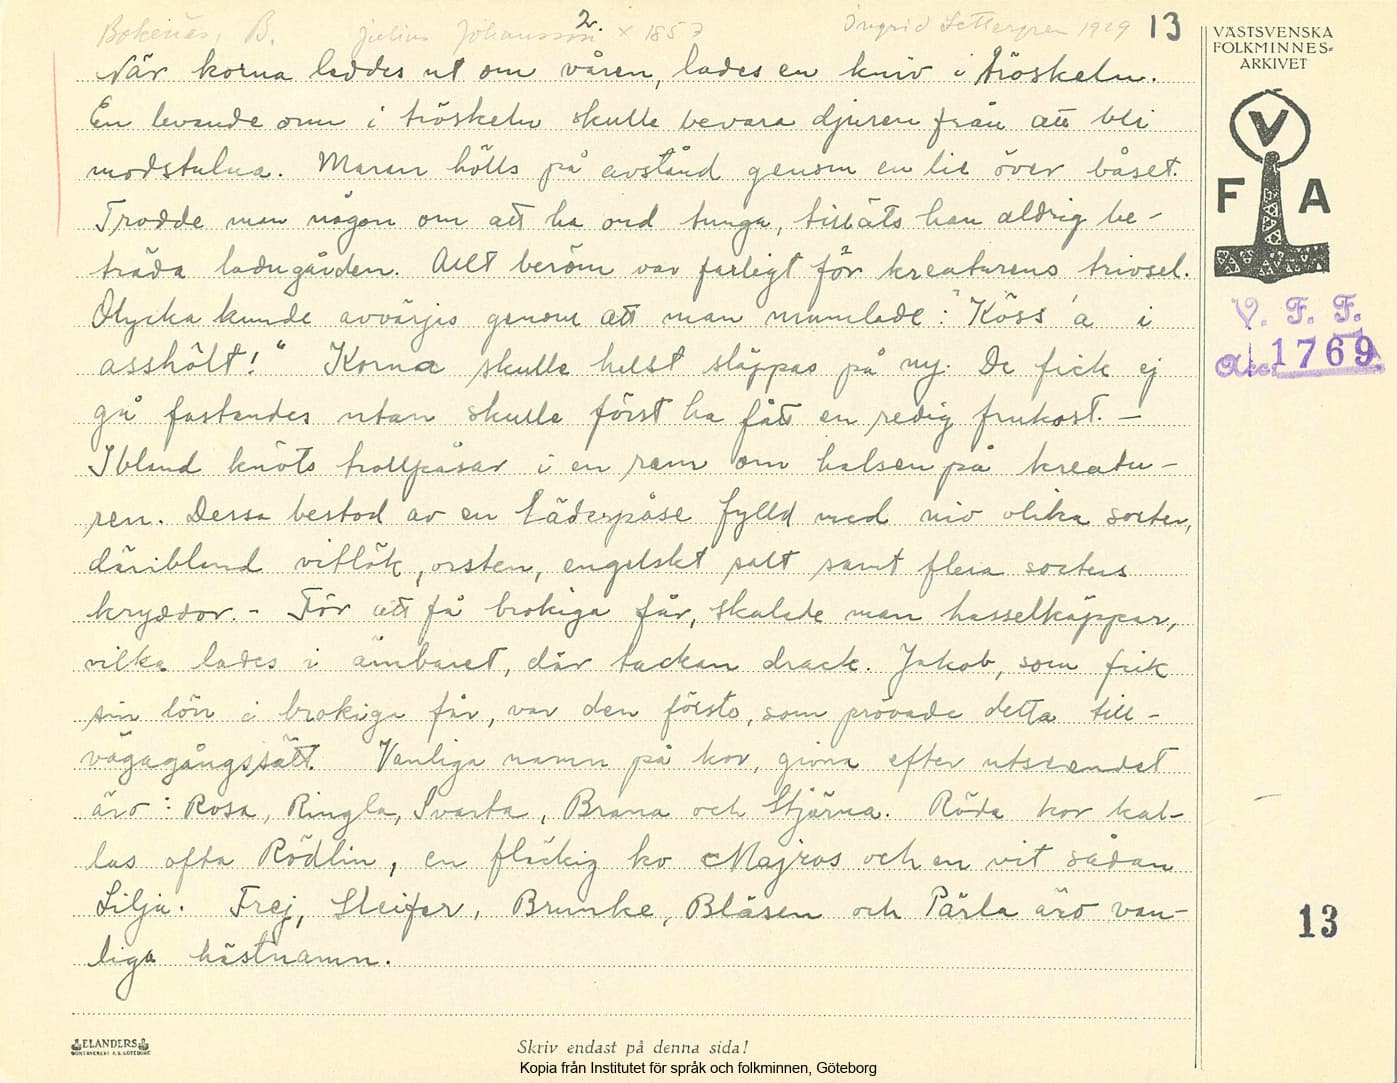 Bokenäs, B. Julius Johansson x 1857 Ingrid Settergren 1929 13
2.
VÄSTSVENSKA
FOLKMINNES-
ARKIVET
När korna leddes ut om våren, lades en kniv i tröskeln.
En levande orm i tröskeln skulle bevara djuren från att bli
modstulna. Maran hölls på avstånd genom en lie över båset.
Trodde man någon om att ha ond tunga, tilläts han aldrig be-
träda ladugården. Allt beröm var farligt för kreaturens trivsel.
Olycka kunde avvärjas genom att man mumlade: "Köss a i
asshôlt!" Korna skulle helst släppas på ny. De fick ej
gå fastandes utan skulle först ha fått en redig frukost. -
Ibland knöts trollpåsar i en rem om halsen på kreatu-
ren. Dessa bestod av en läderpåse fylld med nio olika sorter,
däribland vitlök, orsten, engelskt salt samt flera sorters
kryddor. - För att få brokiga får, skalade man hasselkäppar,
vilka lades i ämbaret, där tackan drack. Jakob, som fick
sin lön i brokiga får, var den första, som prövade detta till-
vägagångssätt. Vanliga namn på kor, givna efter utseendet
äro: Rosa, Ringla, Svarta, Brana och Stjärna. Röda kor kal-
las ofta Rödlin, en fläckig ko Majros och en vit sådan
Lilja. Frej, Sleifer, Brunke, Bläsen och Pärla äro van-
liga hästnamn.
V
F A
V. F. F.
Acc. 1769
13
ELANDERS
Skriv endast på denna sida!
Kopia från Institutet för språk och folkminnen, Göteborg